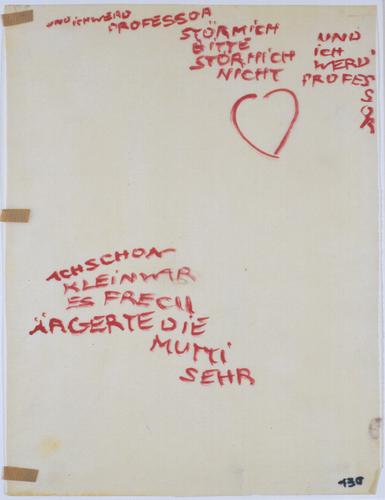 UND ICH WERD PROFESSOR
STÖR MICH
BITTE
STÖR MICH
NICHT
UND
ICH
WERD'
PROFESSOR
ACH SCHON
KLEIN WAR
ES FRECH
ÄRGERTE DIE
MUTTI
SEHR
430